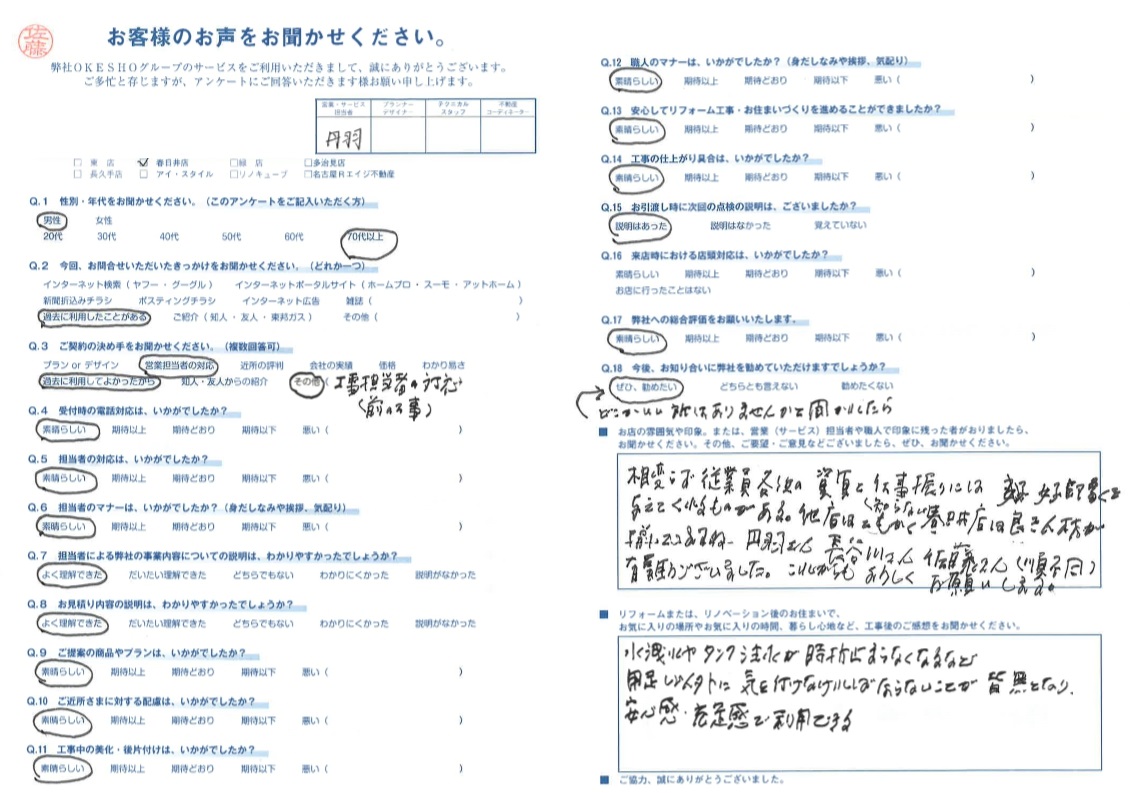 佐藤
お客様のお声をお聞かせください。
弊社OKESHOグループのサービスをご利用いただきまして、誠にありがとうございます。
ご多忙と存じますが、アンケートにご回答いただきます様お願い申し上げます。
営業・サービス担当者 プランナーデザイナー テクニカルスタッフ 不動産コーディネーター
丹羽
□ 東 店 ☑ 春日井店 □緑 店 □多治見店
□ 長久手店 □ アイ・スタイル □リノキューブ □名古屋Rエイジ不動産
Q.1 性別・年代をお聞かせください。（このアンケートをご記入いただく方）
男性 女性
20代 30代 40代 50代 60代 70代以上
Q.2 今回、お問合せいただいたきっかけをお聞かせください。（どれか一つ）
インターネット検索（ ヤフー ・ グーグル ） インターネットポータルサイト（ ホームプロ ・ スーモ ・ アットホーム ）
新聞折込みチラシ ポスティングチラシ インターネット広告 雑誌（ ）
過去に利用したことがある ご紹介（ 知人 ・ 友人 ・ 東邦ガス ） その他（ ）
Q.3 ご契約の決め手をお聞かせください。（複数回答可）
プラン or デザイン 営業担当者の対応 近所の評判 会社の実績 価格 わかり易さ
過去に利用してよかったから 知人・友人からの紹介 その他（ 工事担当者の対応
（前の工事）
Q.4 受付時の電話対応は、いかがでしたか？
素晴らしい 期待以上 期待どおり 期待以下 悪い（ ）
Q.5 担当者の対応は、いかがでしたか？
素晴らしい 期待以上 期待どおり 期待以下 悪い（ ）
Q.6 担当者のマナーは、いかがでしたか？（身だしなみや挨拶、気配り）
素晴らしい 期待以上 期待どおり 期待以下 悪い（ ）
Q.7 担当者による弊社の事業内容についての説明は、わかりやすかったでしょうか？
よく理解できた だいたい理解できた どちらでもない わかりにくかった 説明がなかった
Q.8 お見積り内容の説明は、わかりやすかったでしょうか？
よく理解できた だいたい理解できた どちらでもない わかりにくかった 説明がなかった
Q.9 ご提案の商品やプランは、いかがでしたか？
素晴らしい 期待以上 期待どおり 期待以下 悪い（ ）
Q.10 ご近所さまに対する配慮は、いかがでしたか？
素晴らしい 期待以上 期待どおり 期待以下 悪い（ ）
Q.11 工事中の美化・後片付けは、いかがでしたか？
素晴らしい 期待以上 期待どおり 期待以下 悪い（ ）
Q.12 職人のマナーは、いかがでしたか？（身だしなみや挨拶、気配り）
素晴らしい 期待以上 期待どおり 期待以下 悪い（ ）
Q.13 安心してリフォーム工事・お住まいづくりを進めることができましたか？
素晴らしい 期待以上 期待どおり 期待以下 悪い（ ）
Q.14 工事の仕上がり具合は、いかがでしたか？
素晴らしい 期待以上 期待どおり 期待以下 悪い（ ）
Q.15 お引渡し時に次回の点検の説明は、ございましたか？
説明はあった 説明はなかった 覚えていない
Q.16 来店時における店頭対応は、いかがでしたか？
素晴らしい 期待以上 期待どおり 期待以下 悪い（ ）
お店に行ったことはない
Q.17 弊社への総合評価をお願いいたします。
素晴らしい 期待以上 期待どおり 期待以下 悪い（ ）
Q.18 今後、お知り合いに弊社を勧めていただけますでしょうか？
ぜひ、勧めたい どちらとも言えない 勧めたくない
どこかいい所はありませんかと聞かれたら
■ お店の雰囲気や印象。または、営業（サービス）担当者や職人で印象に残った者がおりましたら、
お聞かせください。その他、ご要望・ご意見などございましたら、ぜひ、お聞かせください。
相変らず従業員各位の資質と仕事振りには 好印象を
与えてくれるものがある。他店は（知らない）ともかく春日井店は良き人材が
揃っていますね。丹羽さん 長谷川さん 佐藤さん（順不同）
有難うございました。これからもよろしくお願いします。
■ リフォームまたは、リノベーション後のお住まいで、
お気に入りの場所やお気に入りの時間、暮らし心地など、工事後のご感想をお聞かせください。
水洩れやタンク注水が時折止まらなくなるなど
用足し以外に気を付けなければならないことが皆無となり、
安心感・充足感で利用できる
■ ご協力、誠にありがとうございました。